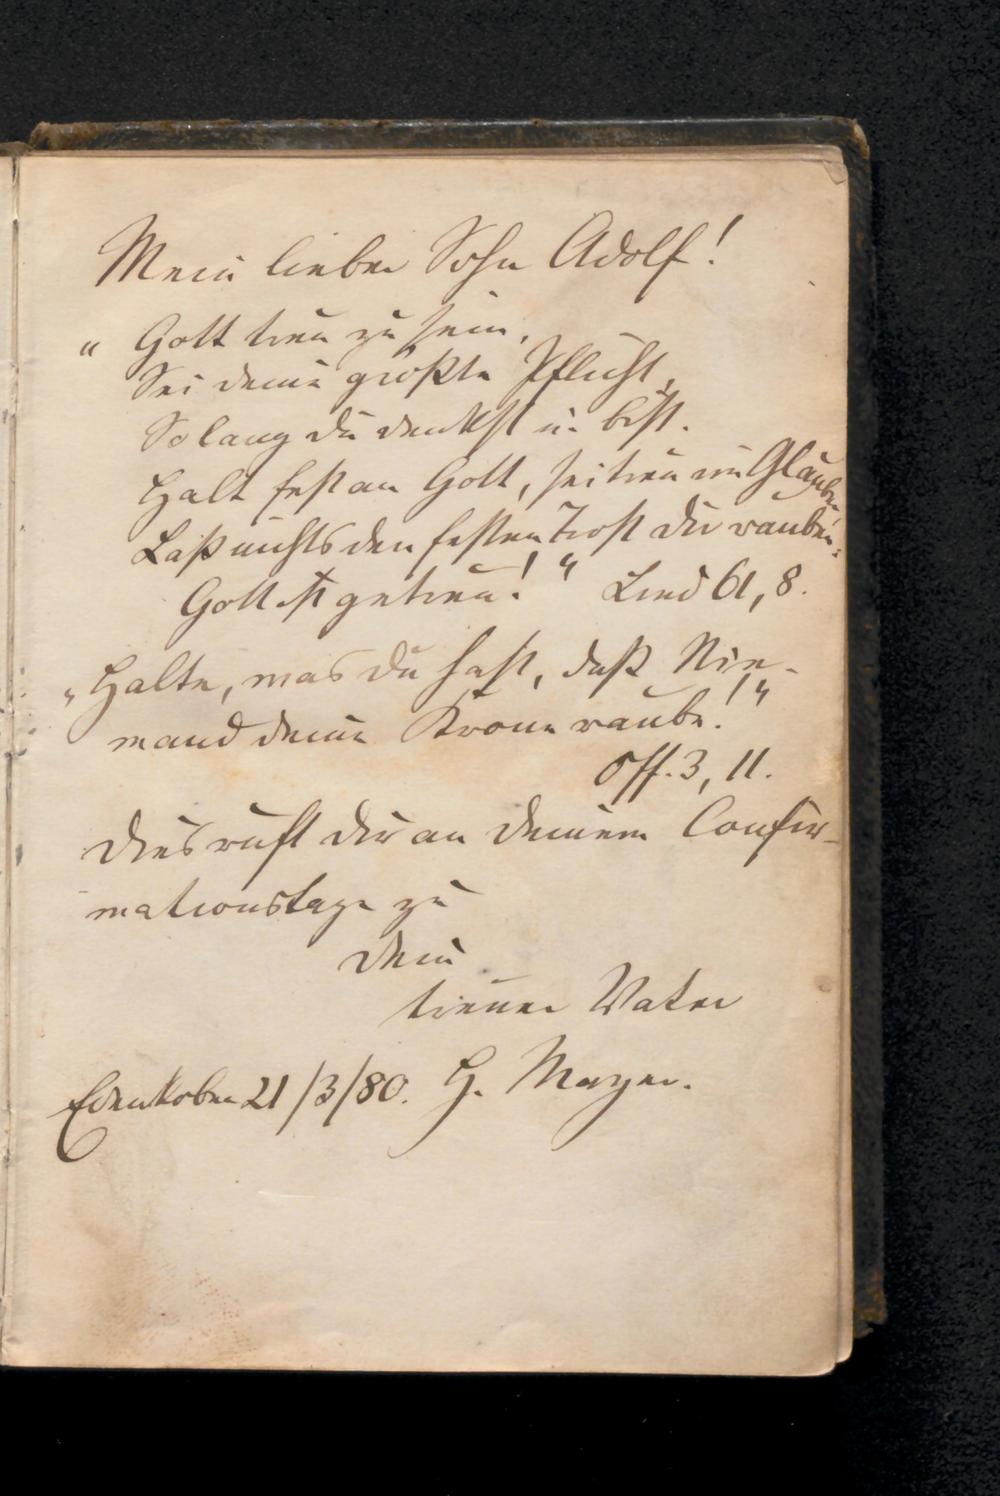 Mein lieber Sohn Adolf!
„ Gott treu zu sein,
Sei deine größte Pflicht,
So lang du denkst u. bist.
Halt fest an Gott, sei treu im Glauben
Laß nichts den festen Trost dir rauben:
Gott ist getreu!“ Lied 61, 8.
„Halte, was du hast, daß Nie-
mand deine Krone raube!“
Off. 3, 11.
Dies ruft dir an deinem Confir-
mationstage zu
dein
treuer Vater
Edenkoben 21/3/80. H. Mayer.